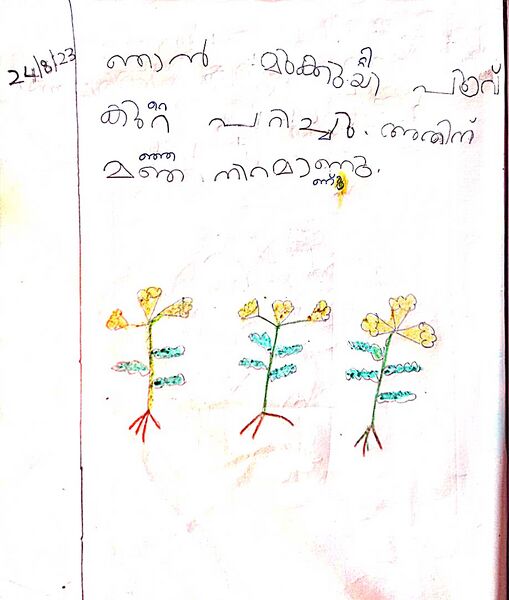 24/8/23
ഞാൻ മുക്കുറ്റി പൂവ്
കുറെ പറിച്ചു. അതിന്
മഞ്ഞ നിറമാണു.